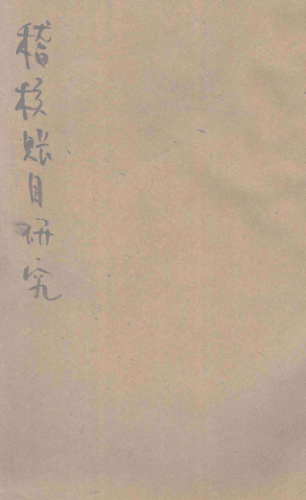 稽核账目研究